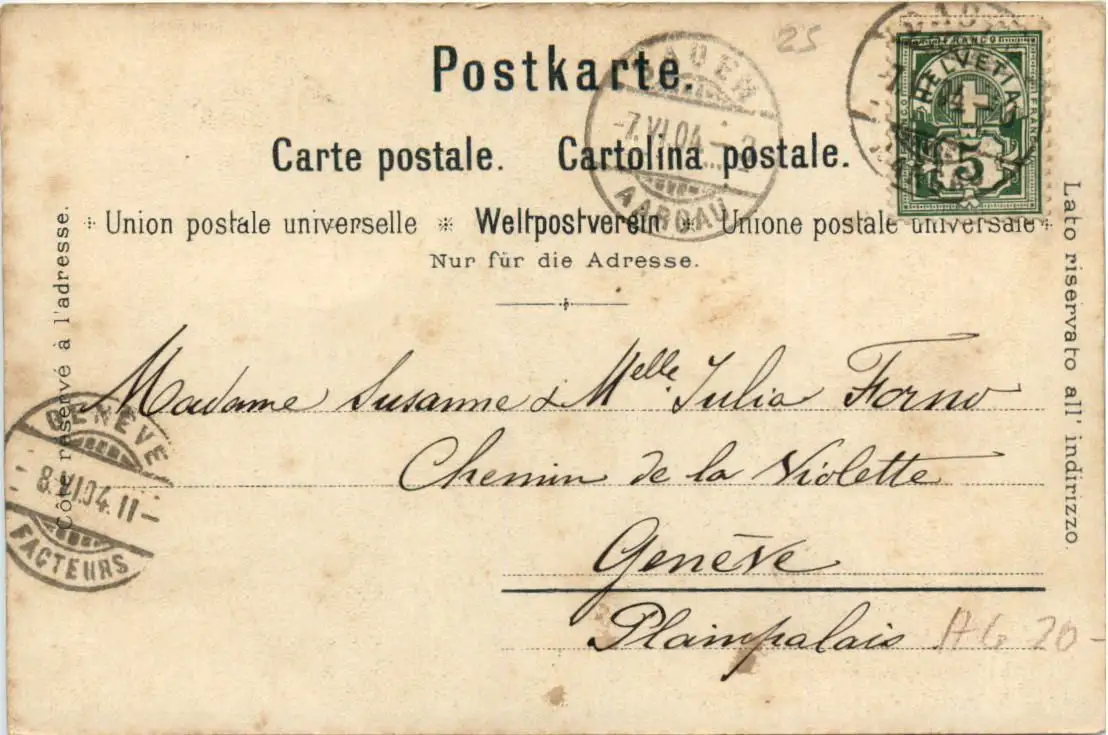 25
Postkarte.
Carte postale. Cartolina postale.
Union postale universelle * Weltpostverein * Unione postale universale
Nur für die Adresse.
Côté réservé à l'adresse.
Lato riservato all' indirizzo.
FRANCO
HELVETIA
5
BADEN
-7.VI.04.-
AARGAU
GENÈVE
8.VI.04.11-
FACTEURS
Madame Susanne & Melle. Julia Forno
Chemin de la Violette
Genève
Plainpalais
AG 20-